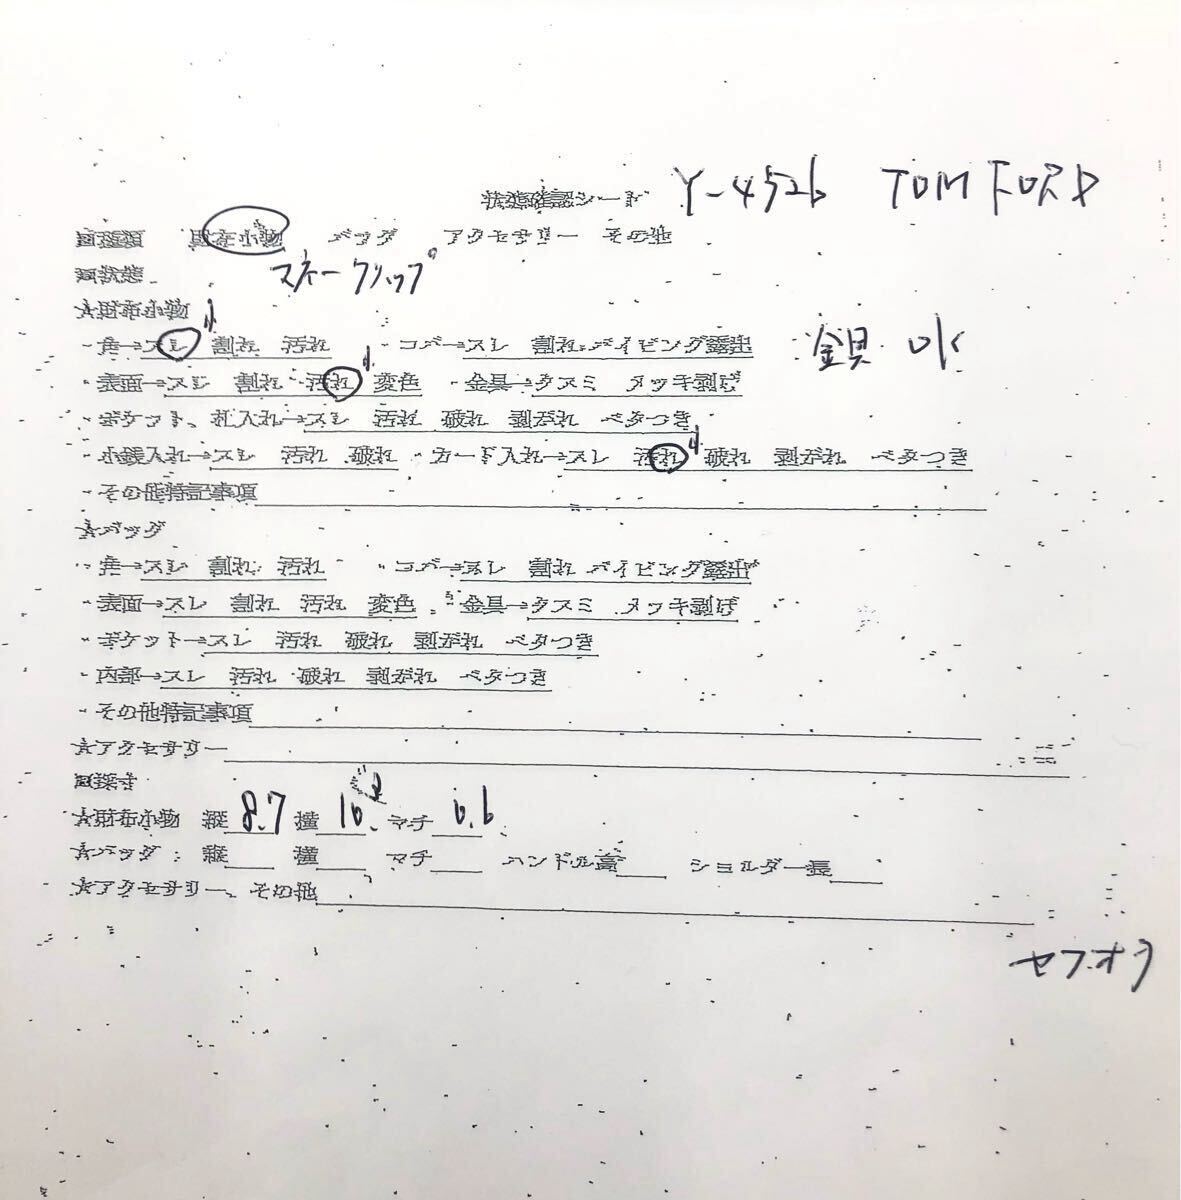 状態確認シート Y-4526 TOM FORD
財布小物 バッグ アクセサリー その他
マネークリップ
状態
☆財布小物 小
・角→スレ 割れ 汚れ ・コバ→スレ 割れ パイピング露出 金具 OK
・表面→スレ 割れ 汚れ 小 変色 ・金具→クスミ メッキ剥げ
・ポケット、札入れ→スレ 汚れ 破れ 剥がれ ベタつき
・小銭入れ→スレ 汚れ 破れ ・カード入れ→スレ 汚れ 小 破れ 剥がれ ベタつき
・その他特記事項
☆バッグ
・角→スレ 割れ 汚れ ・コバ→スレ 割れ パイピング露出
・表面→スレ 割れ 汚れ 変色 ・金具→クスミ メッキ剥げ
・ポケット→スレ 汚れ 破れ 剥がれ ベタつき
・内部→スレ 汚れ 破れ 剥がれ ベタつき
・その他特記事項
☆アクセサリー
採寸
☆財布小物 縦 8.7 横 10. マチ 0.6
☆バッグ 縦 横 マチ ハンドル高 ショルダー長
☆アクセサリー、その他
セフオク